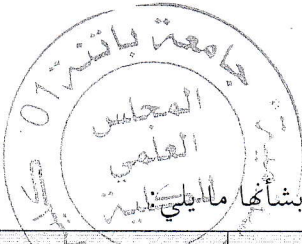 جامعة باتنة 01
المجلس
العلمي
بشأنها مايلي: